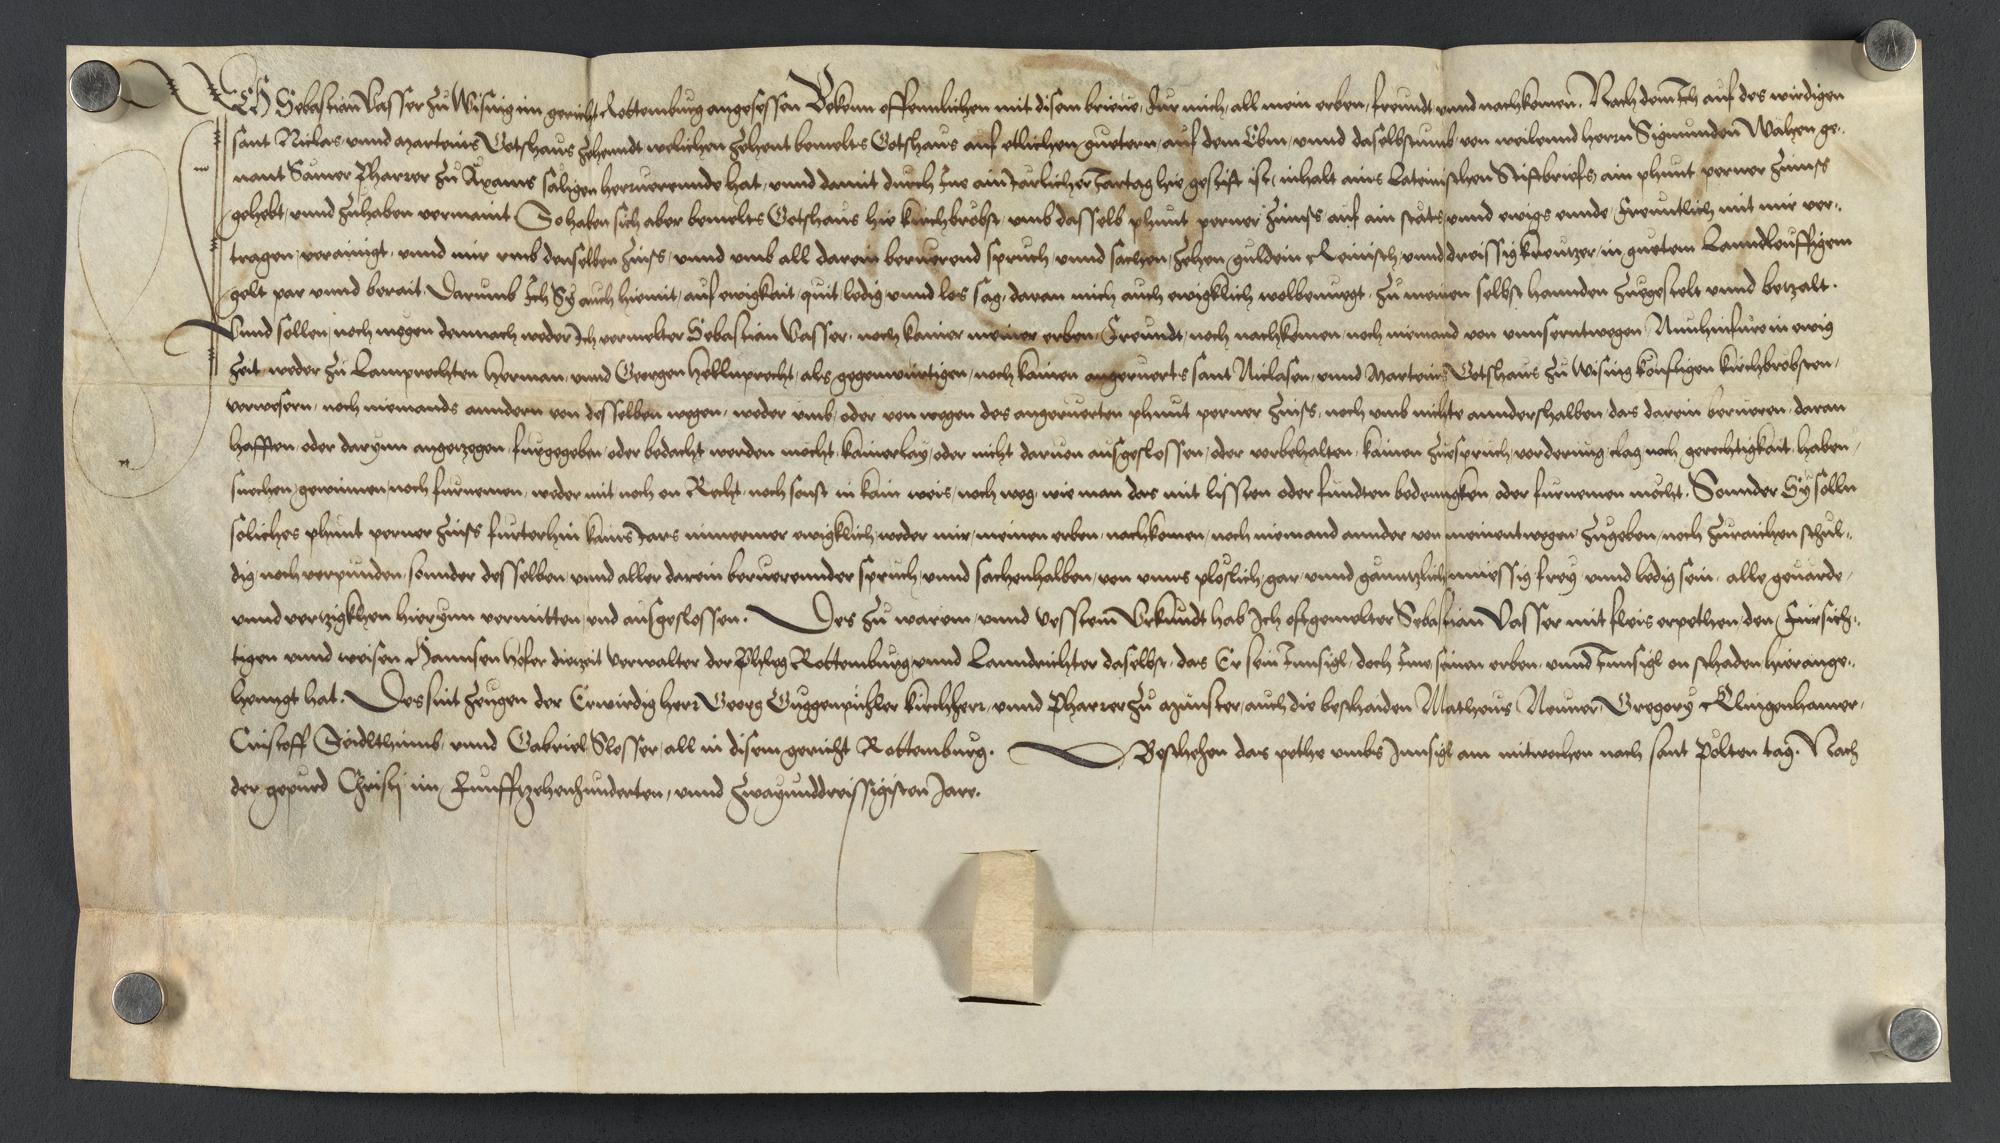 Ich Sebastian Vasser zu Wising im gericht Rottemburg angesessen Bekenn offennlichen mit disem brieue, Fur mich, all mein erben, freundt vnnd nachkomen. Nach dem Ich auf des wirdigen
sant Niclas, vnnd Marteins Gotshaus zehenndt welichen zehent bemelts Gotshaus auf etlichen guetern, auf dem Ebm, vnnd daselbstumb, von weilennd herrn Sigmunden Walhen ge-
nant Pharrer zu Axams saligen herruerennde hat, vnnd damit durch Ine ain Jarlicher Jartag hie gestift ist, inhalt ains Lateinischen Stiftbriefs, ain phunt perner Zinnss
gehebt, vnnd zuhaben vermaint So haben sich aber bemelts Gotshaus hie kirchbröbst, vmb dasselb phunt perner Zinnss auf ain stäts, vnnd ewigs ennde, Freuntlich mit mir ver-
tragen, verainigt, vnnd mir vmb denselben Zinss, vnnd vmb all darein beruerend spruch, vnnd sachen, Zehen guldein Reinisch, vnnd dreissig kreutzer, in guetem Lanndleuffigem
gelt par vnnd berait, Darumb Ich Sy auch hiemit, auf ewigkait, quit, ledig vnnd los sag, daran mich auch ewigklich wolbenuegt, zu meinen selbst hannden zuegestelt vnnd betzalt.
Vnnd sollen, noch mogen demnach weder Ich vermelter Sebastian Vasser, noch kainer meiner erben, Freundt, noch nachkomen, noch niemand von vnnserntwegen Nunhinfure in ewig
Zeit, weder zu Lamprechten Herman, vnnd Georgen Hellnprecht, als gegenwürtigen, noch kainen angeruerts sant Niclasen, vnnd Marteins Gotshaus zu Wising konfftigen kirchbrobsten,
verwesern, noch niemands anndern von desselben wegen, weder vmb, oder von wegen des angeruerten phunt perner Zinss, noch vmb nichte annderschalben, das darein berueren, daran
hafften, oder darynn angetzogen, furgegeben, oder bedacht werden mocht, kainerlay, oder nicht daruon ausgeslossen, oder vorbehalten, kainen zuespruch, vorderung, clag, noch gerechtigkait, haben,
suechen, gewinnen, noch furnemen, weder mit, noch on Recht, noch sonst in kain weis, noch weg, wie man das mit lissten oder fundten bedenngken oder furnemen möcht. Sonnder Sy solln
soliches phunt perner Zinss furterhin kains Jars nimermer ewigklich, weder mir, meinen erben, nachkomen, noch niemand annder von meinentwegen Zugeben, noch Zuraichen schul-
dig, noch verpunden, sonnder desselben, vnnd aller darein beruerennder spruch, vnnd sachenhalben, von vnns plöslich, gar, vnnd gänntzlich, muessig, frey, vnnd ledig sein, alle geuärde,
vnnd vertzigkhen hierynn vermitten, vnd ausgeslossen. Des zu warem, vnnd vesstem Vrkundt hab Ich oftgemelter Sebastian Vasser mit fleis erpethen, den Fursich-
tigen vnnd weisen Hannsen Hofer dietzeit Verwalter der Phleg Rottemburg, vnnd Lanndrichter daselbst, das Er sein Innsigl, doch Ime, seinen erben, vnnd Innsigl on schaden, hierange-
henngt hat. Des sint Zeugen der Erwirdig herr Georg Guggenpichler kirchherr, vnnd Pharrer zu Munster, auch die beschaiden Matheus Neuner, Gregory Klingenhamer,
Cristoff Seidlthumb, vnnd Gabriel Slosser, all in disem gericht Rottemburg. Beschehen das pethe vmbs Innsigl am mitwochen nach sant Pölten tag. Nach
der gepurd Christj im Funfftzehenhunderten, vnnd Zwayunddreissigisten Jare.